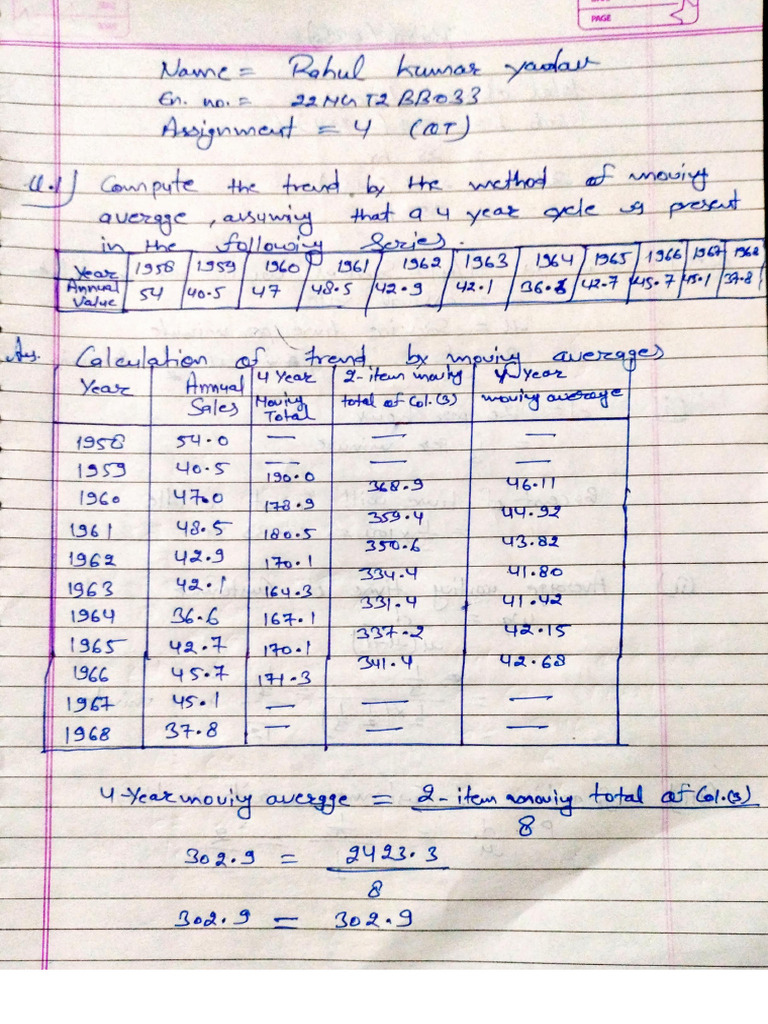 PAGE
Name = Rahul Kumar yadav
En. no. = 22MGT2BB033
Assignment = 4 (QT)
Q.1) Compute the trend by the method of moving
average, assuming that a 4 year cycle is present
in the following series.
Year 1958 1959 1960 1961 1962 1963 1964 1965 1966 1967 1968
Annual Value 54 40.5 47 48.5 42.9 42.1 36.6 42.7 45.7 45.1 37.8
Ans. Calculation of trend by moving averages
Year Annual Sales 4 Year Moving Total 2-item moving total of Col.(3) 4 Year moving average
1958 54.0 — — —
1959 40.5 — — —
190.0 368.9 46.11
1960 47.0
178.9 359.4 44.92
1961 48.5
180.5 350.6 43.82
1962 42.9
170.1 334.4 41.80
1963 42.1
164.3 331.4 41.42
1964 36.6
167.1 337.2 42.15
1965 42.7
170.1 341.4 42.68
1966 45.7
171.3
1967 45.1 — — —
1968 37.8 — — —
4-Year moving average = 2-item moving total of Col.(3)
8
302.9 = 2423.3
8
302.9 = 302.9